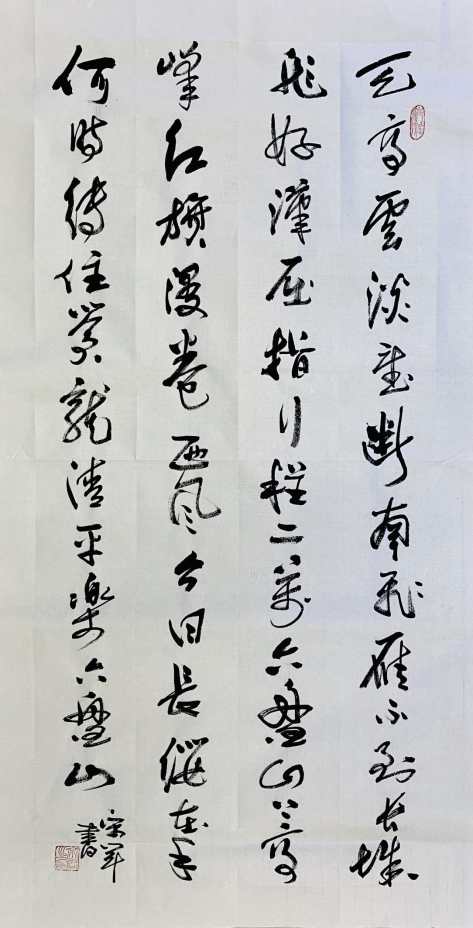 天高雲淡望斷南飛雁不到長城
非好漢屈指行程二萬六盤山上高
峰紅旗漫卷西風今日長纓在手
何時縛住蒼龍清平樂六盤山
宋軍
書